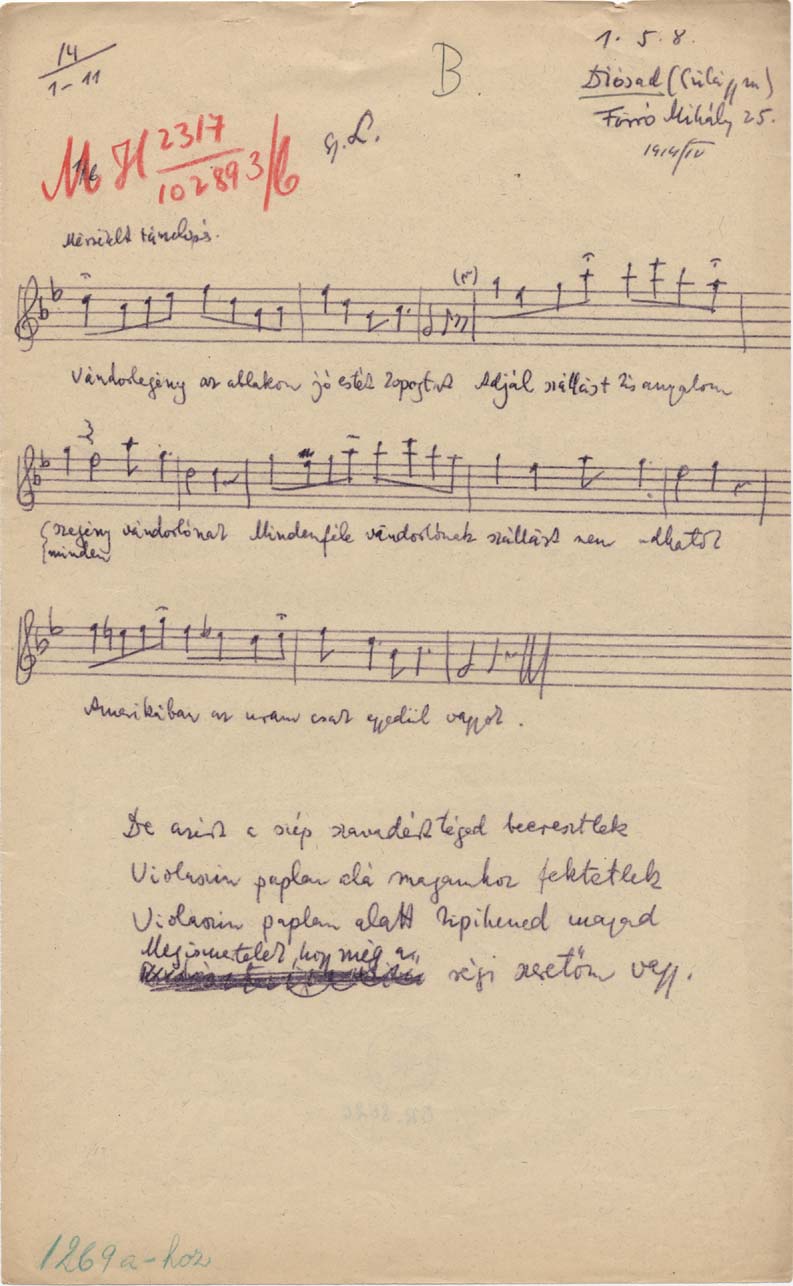 14
1-11
B.
1. 5. 8.
Diósad (Szilágy m)
Forró Mihály 25.
1914/IV
MH 2317
102893/b
gy. L.
Mérsékelt tánclépés.
Vándorlegény az ablakon jó estét kopogtat Adjál szállást kis angyalom
szegény vándorlónak Mindenféle vándorlónak szállást nem adhatok
minden
Amerikában az uram csak egyedül vagyok.
De azért a szép szavadért téged beeresztlek
Violaszin paplan alá magamhoz fektetlek
Violaszin paplan alatt kipihened magad
Megismerlek, hogy még a
régi szeretőm vagy.
1269a-hoz